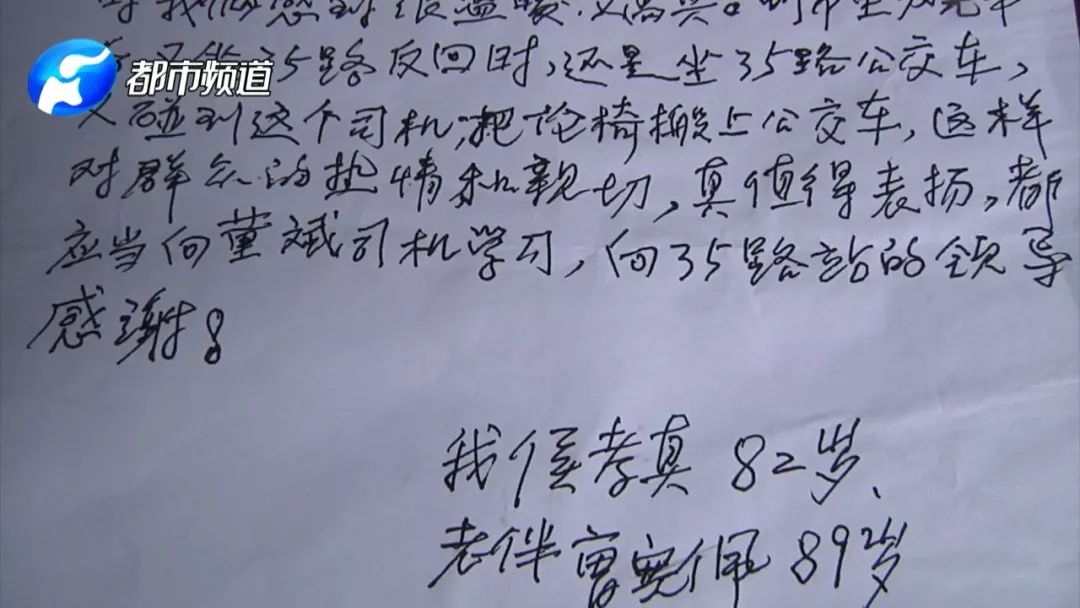 我们感到很温暖,又高兴。到市里
都市频道
坐35路反回时,还是坐35路公交车,
又碰到这个司机,把论椅搬上公交车,这样
对群众的热情和亲切,真值得表扬,都
应当向董斌司机学习,向35路站的领导
感谢!
我侯孝真 82岁、
老伴曹宪佩 89岁